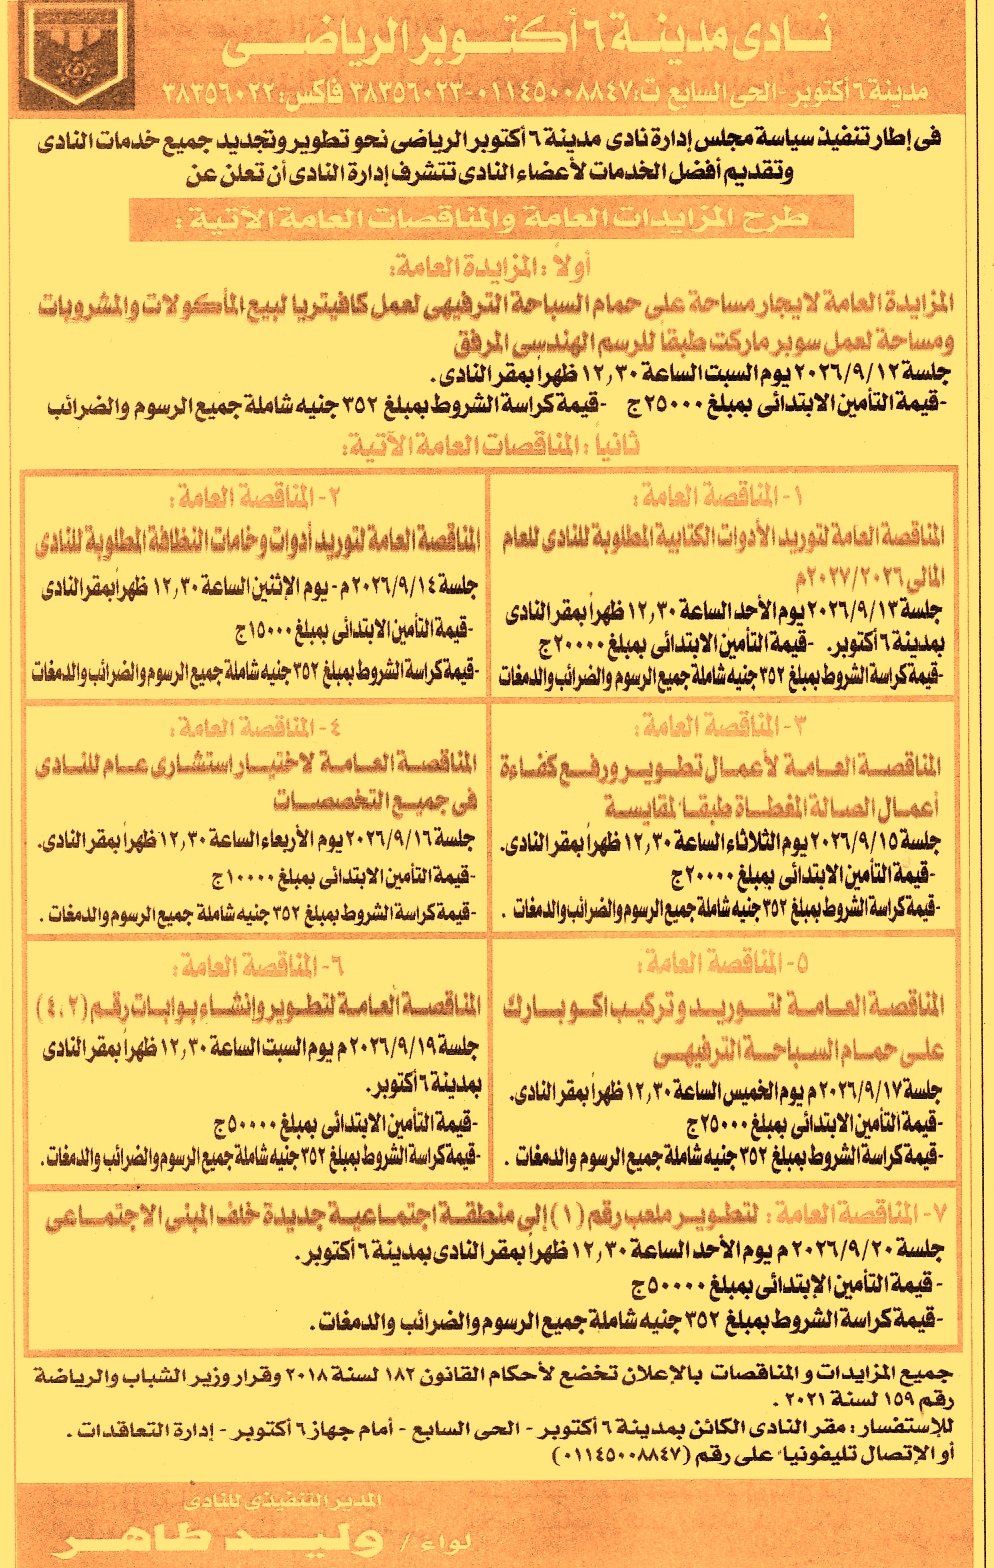 نادى مدينة ٦ أكتوبر الرياضى
مدينة ٦ أكتوبر - الحى السابع ت: ٠١١٤٥٠٠٨٨٤٧-٣٨٣٥٦٠٢٣ فاكس: ٣٨٣٥٦٠٢٢
فى إطار تنفيذ سياسة مجلس إدارة نادى مدينة ٦ أكتوبر الرياضى نحو تطوير وتجديد جميع خدمات النادى
وتقديم أفضل الخدمات لأعضاء النادى تتشرف إدارة النادى أن تعلن عن
طرح المزايدات العامة والمناقصات العامة الآتية :
أولاً : المزايدة العامة:
المزايدة العامة لايجار مساحة على حمام السباحة الترفيهى لعمل كافيتريا لبيع المأكولات والمشروبات
ومساحة لعمل سوبر ماركت طبقاً للرسم الهندسى المرفق
جلسة ٢٠٢٦/٩/١٢ يوم السبت الساعة ١٢,٣٠ ظهراً بمقر النادى .
-قيمة التأمين الابتدائى بمبلغ ٢٥٠٠٠ ج -قيمة كراسة الشروط بمبلغ ٣٥٢ جنيه شاملة جميع الرسوم والضرائب
ثانياً : المناقصات العامة الآتية:
١- المناقصة العامة :
المناقصة العامة لتوريد الأدوات الكتابية المطلوبة للنادى للعام
المالى ٢٠٢٧/٢٠٢٦م
جلسة ٢٠٢٦/٩/١٣ يوم الأحد الساعة ١٢,٣٠ ظهراً بمقر النادى
بمدينة ٦ أكتوبر. -قيمة التأمين الابتدائى بمبلغ ٢٠٠٠٠ ج
-قيمة كراسة الشروط بمبلغ ٣٥٢ جنيه شاملة جميع الرسوم والضرائب والدمغات
٢- المناقصة العامة :
المناقصة العامة لتوريد أدوات وخامات النظافة المطلوبة للنادى
جلسة ٢٠٢٦/٩/١٤ م - يوم الإثنين الساعة ١٢,٣٠ ظهراً بمقر النادى
-قيمة التأمين الابتدائى بمبلغ ١٥٠٠٠ ج
-قيمة كراسة الشروط بمبلغ ٣٥٢ جنيه شاملة جميع الرسوم والضرائب والدمغات
٣- المناقصة العامة :
المناقصة العامة لأعمال تطوير ورفع كفاءة
أعمال الصالة المغطاة طبقاً لمقايسة
جلسة ٢٠٢٦/٩/١٥ يوم الثلاثاء الساعة ١٢,٣٠ ظهراً بمقر النادى.
-قيمة التأمين الابتدائى بمبلغ ٢٠٠٠٠ ج
-قيمة كراسة الشروط بمبلغ ٣٥٢ جنيه شاملة جميع الرسوم والضرائب والدمغات .
٤- المناقصة العامة :
المناقصة العامة لاختيار استشارى عام للنادى
فى جميع التخصصات
جلسة ٢٠٢٦/٩/١٦ يوم الأربعاء الساعة ١٢,٣٠ ظهراً بمقر النادى.
-قيمة التأمين الابتدائى بمبلغ ١٠٠٠٠ ج
-قيمة كراسة الشروط بمبلغ ٣٥٢ جنيه شاملة جميع الرسوم والدمغات .
٥- المناقصة العامة :
المناقصة العامة لتوريد وتركيب اكوبارك
على حمام السباحة الترفيهى
جلسة ٢٠٢٦/٩/١٧ م يوم الخميس الساعة ١٢,٣٠ ظهراً بمقر النادى.
-قيمة التأمين الابتدائى بمبلغ ٢٥٠٠٠ ج
-قيمة كراسة الشروط بمبلغ ٣٥٢ جنيه شاملة جميع الرسوم والدمغات .
٦- المناقصة العامة :
المناقصة العامة لتطوير وإنشاء بوابات رقم (٤،٢)
جلسة ٢٠٢٦/٩/١٩ م يوم السبت الساعة ١٢,٣٠ ظهراً بمقر النادى
بمدينة ٦ أكتوبر.
-قيمة التأمين الابتدائى بمبلغ ٥٠٠٠٠ ج
-قيمة كراسة الشروط بمبلغ ٣٥٢ جنيه شاملة جميع الرسوم والضرائب والدمغات .
٧- المناقصة العامة : لتطوير ملعب رقم (١) إلى منطقة اجتماعية جديدة خلف المبنى الاجتماعى
جلسة ٢٠٢٦/٩/٢٠ م يوم الأحد الساعة ١٢,٣٠ ظهراً بمقر النادى بمدينة ٦ أكتوبر.
- قيمة التأمين الإبتدائى بمبلغ ٥٠٠٠٠ ج
-قيمة كراسة الشروط بمبلغ ٣٥٢ جنيه شاملة جميع الرسوم والضرائب والدمغات .
جميع المزايدات والمناقصات بالإعلان تخضع لأحكام القانون ١٨٢ لسنة ٢٠١٨ وقرار وزير الشباب والرياضة
رقم ١٥٩ لسنة ٢٠٢١ .
للإستفسار : مقر النادى الكائن بمدينة ٦ أكتوبر - الحى السابع - أمام جهاز ٦ أكتوبر - إدارة التعاقدات .
أو الإتصال تليفونياً على رقم (٠١١٤٥٠٠٨٨٤٧)
المدير التنفيذى للنادى
لواء / وليد طاهر